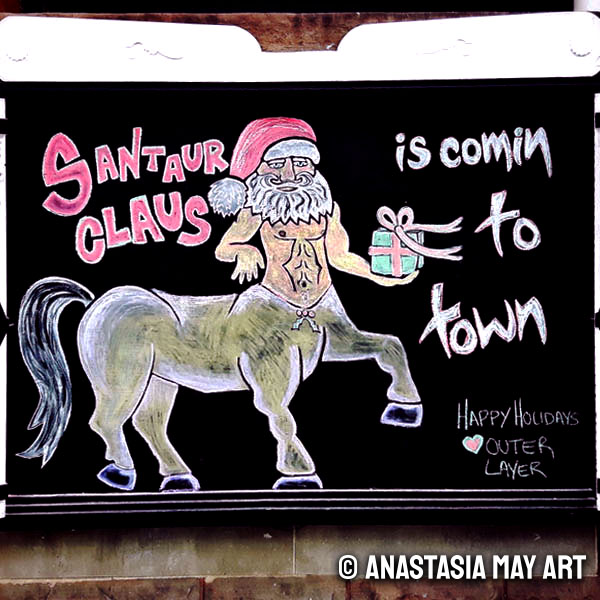 SANTAUR
CLAUS
is comin
to
town
HAPPY HOLIDAYS
OUTER
LAYER
© ANASTASIA MAY ART